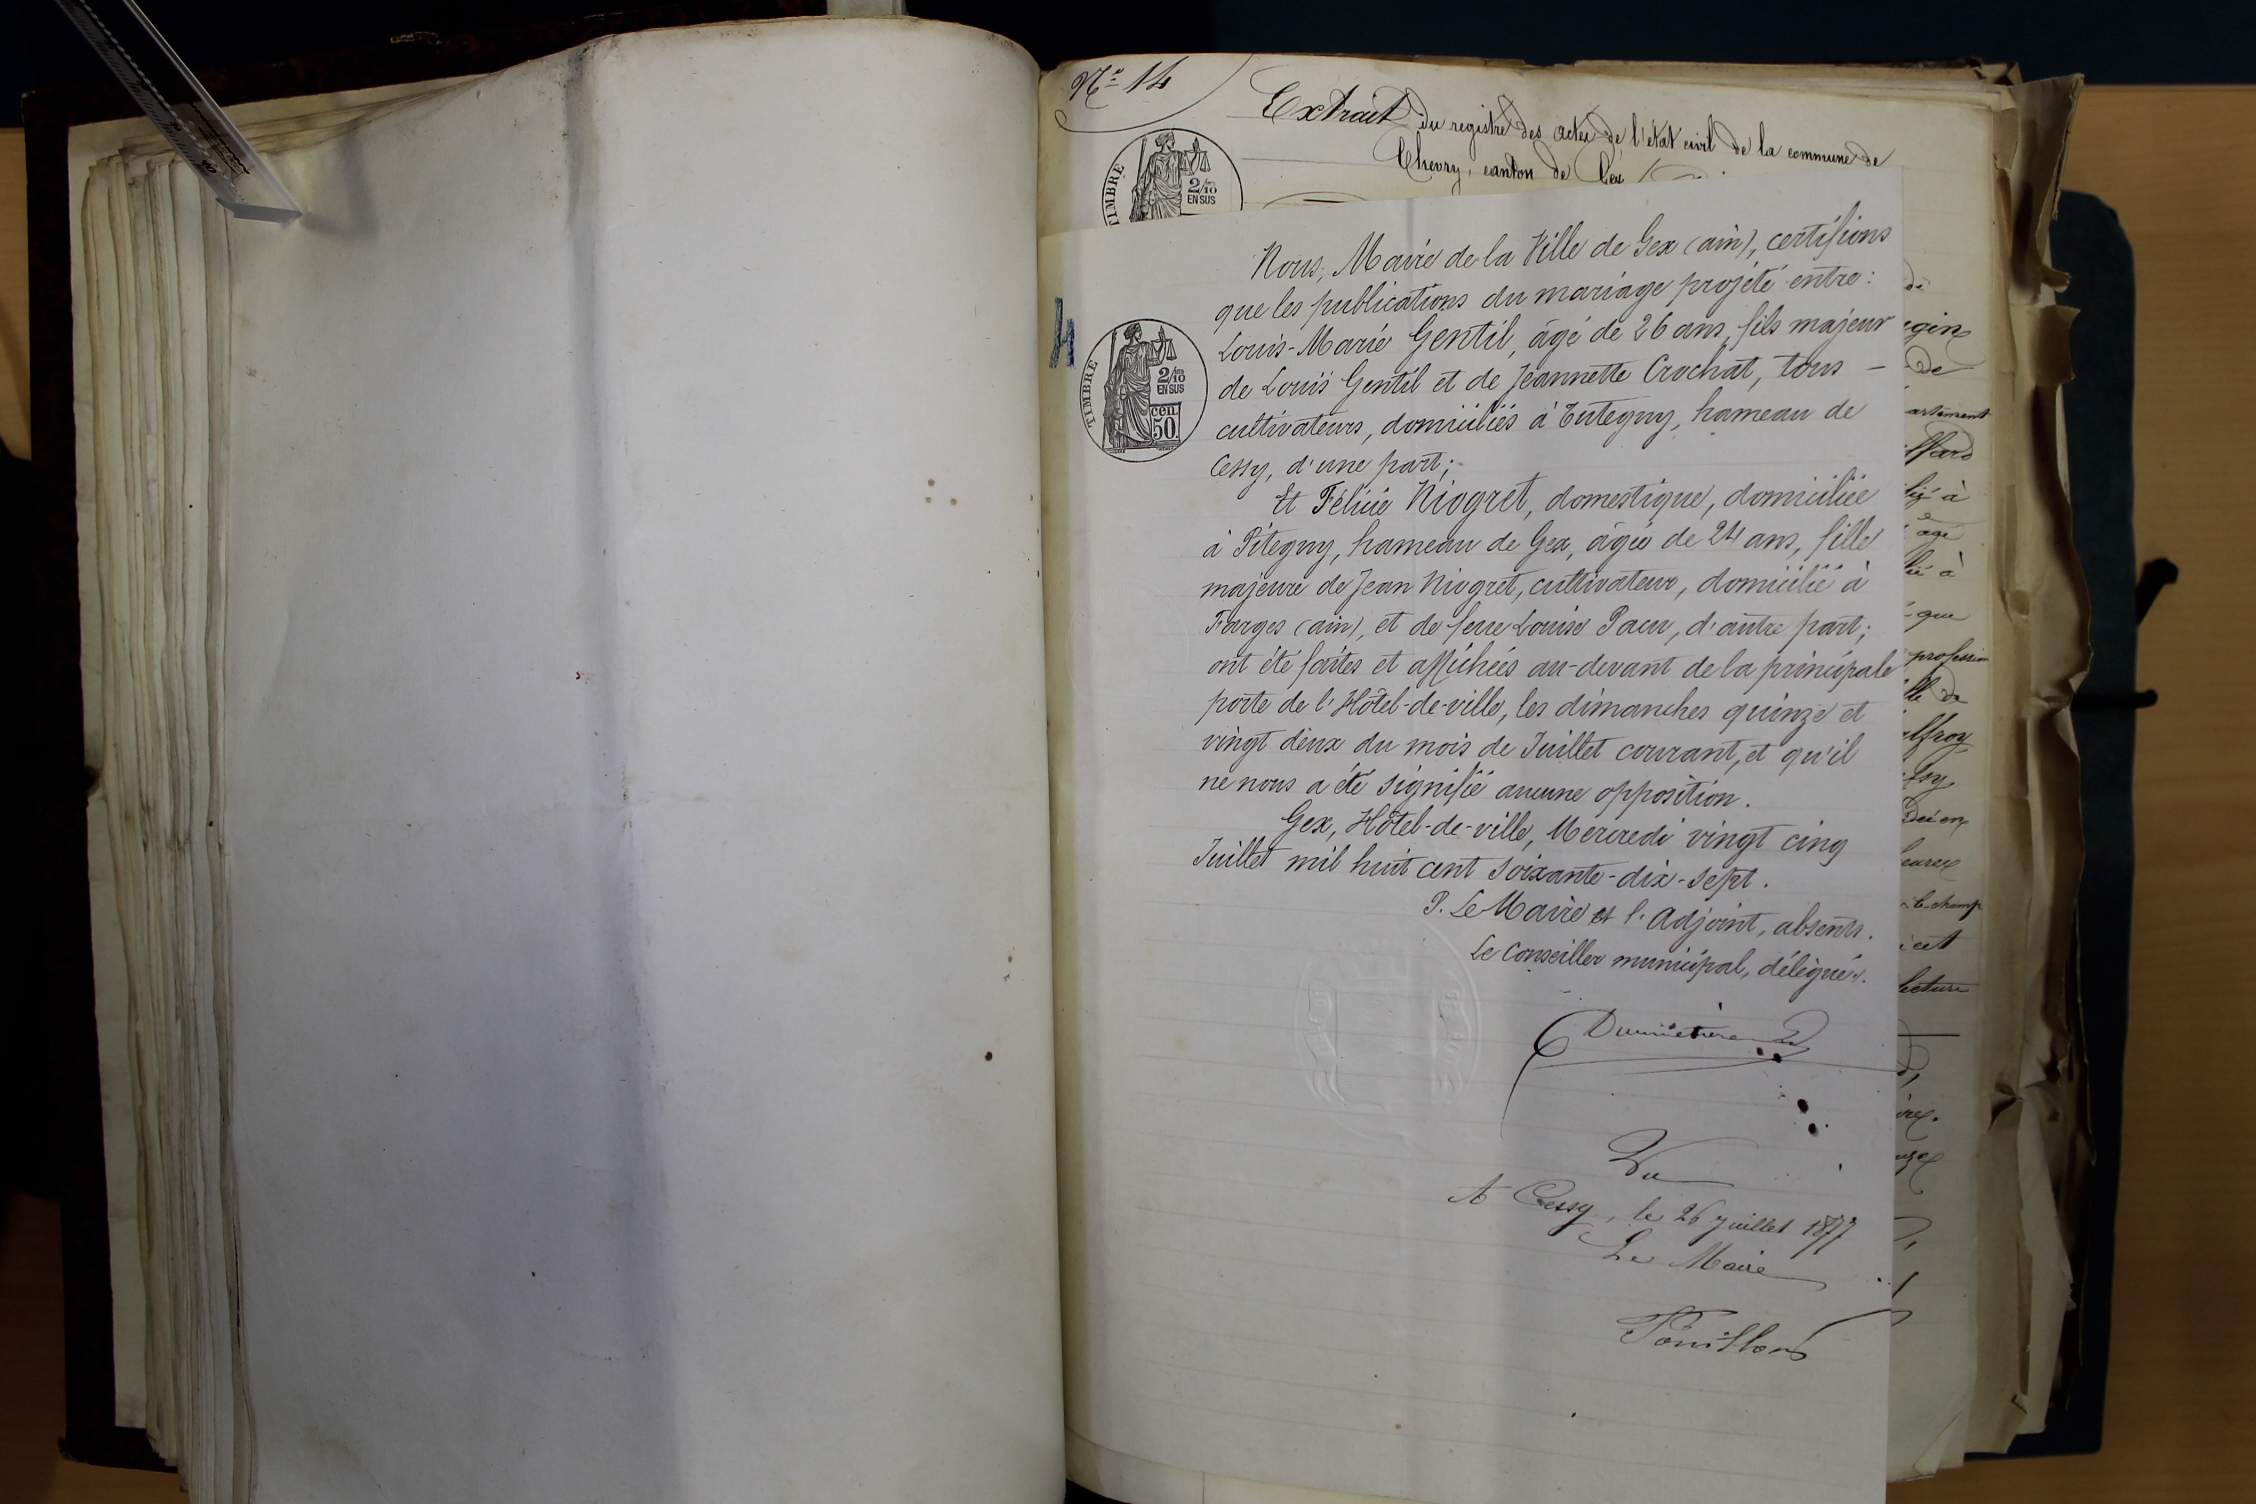 Nº 14
Extrait du registre des actes de l'état civil de la commune de
Chevry, canton de Gex
TIMBRE
2/10
EN SUS
Nous, Maire de la Ville de Gex (ain), certifions
que les publications du mariage projeté entre :
Louis-Marie Gentil, âgé de 26 ans, fils majeur
de Louis Gentil et de Jeannette Crochat, tous —
cultivateurs, domiciliés à Tutegny, hameau de
Cessy, d'une part ;
Et Félicie Niogret, domestique, domiciliée
à Pitegny, hameau de Gex, âgée de 24 ans, fille
majeure de Jean Niogret, cultivateur, domicilié à
Farges (ain), et de feue Louise , d'autre part ;
ont été faites et affichées au-devant de la principale
porte de l'Hôtel-de-ville, les dimanches quinze et
vingt deux du mois de Juillet courant, et qu'il
ne nous a été signifié aucune opposition.
Gex, Hôtel-de-ville, Mercredi vingt cinq
Juillet mil huit cent soixante-dix-sept.
P. Le Maire et l'Adjoint, absents.
Le Conseiller municipal, délégué.
TIMBRE
2/10
EN SUS
cen.
50
Vu
A Cessy, le 26 Juillet 1877
Le Maire
artement
ffard
à
âgé
à
que
profession
lle de
lfroy
heures
champ
cet
lecture